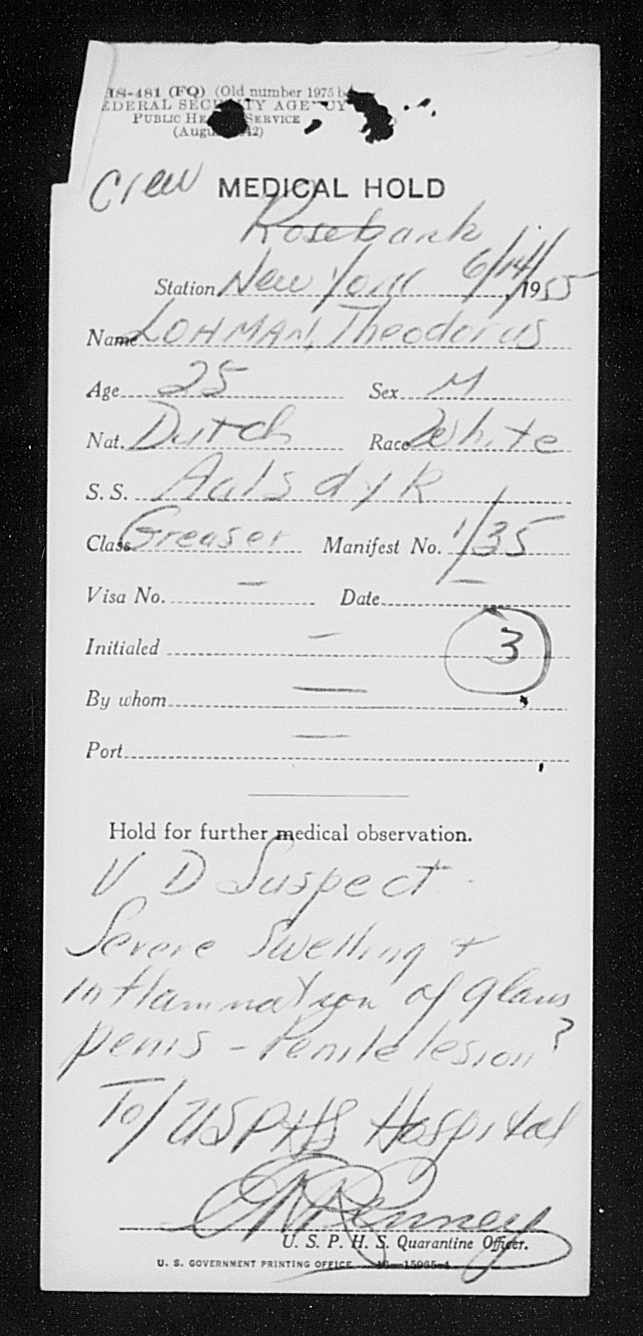 18-481 (FQ) (Old number 1975
FEDERAL SECURITY AGENCY
PUBLIC HEALTH SERVICE
(August 1942)
Crew
MEDICAL HOLD
Rosebank
Station New York 6/14/ 1955
Name LOHMAN, Theodorus
Age 25 Sex M
Nat. Dutch Race White
S. S. Aalsdyk
Class Greaser Manifest No. 1/35
Visa No. — Date —
Initialed — 3
By whom —
Port —
Hold for further medical observation.
V D Suspect
Severe Swelling +
inflammation of glans
penis - Penile lesion?
To/ USPHS Hospital
Penney
U. S. P. H. S. Quarantine Officer.
U. S. GOVERNMENT PRINTING OFFICE 16—15965-1